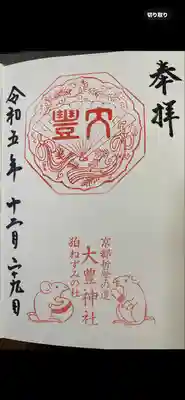 切り取り
奉拝
大豐
京都哲学の道
大豊神社
狛ねずみの社
令和五年 十二月 二十九日